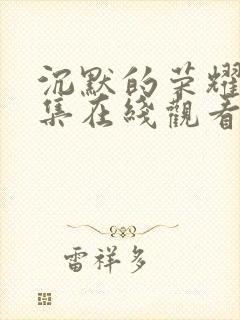 沉默的荣耀
集在綫觀看
雷祥多